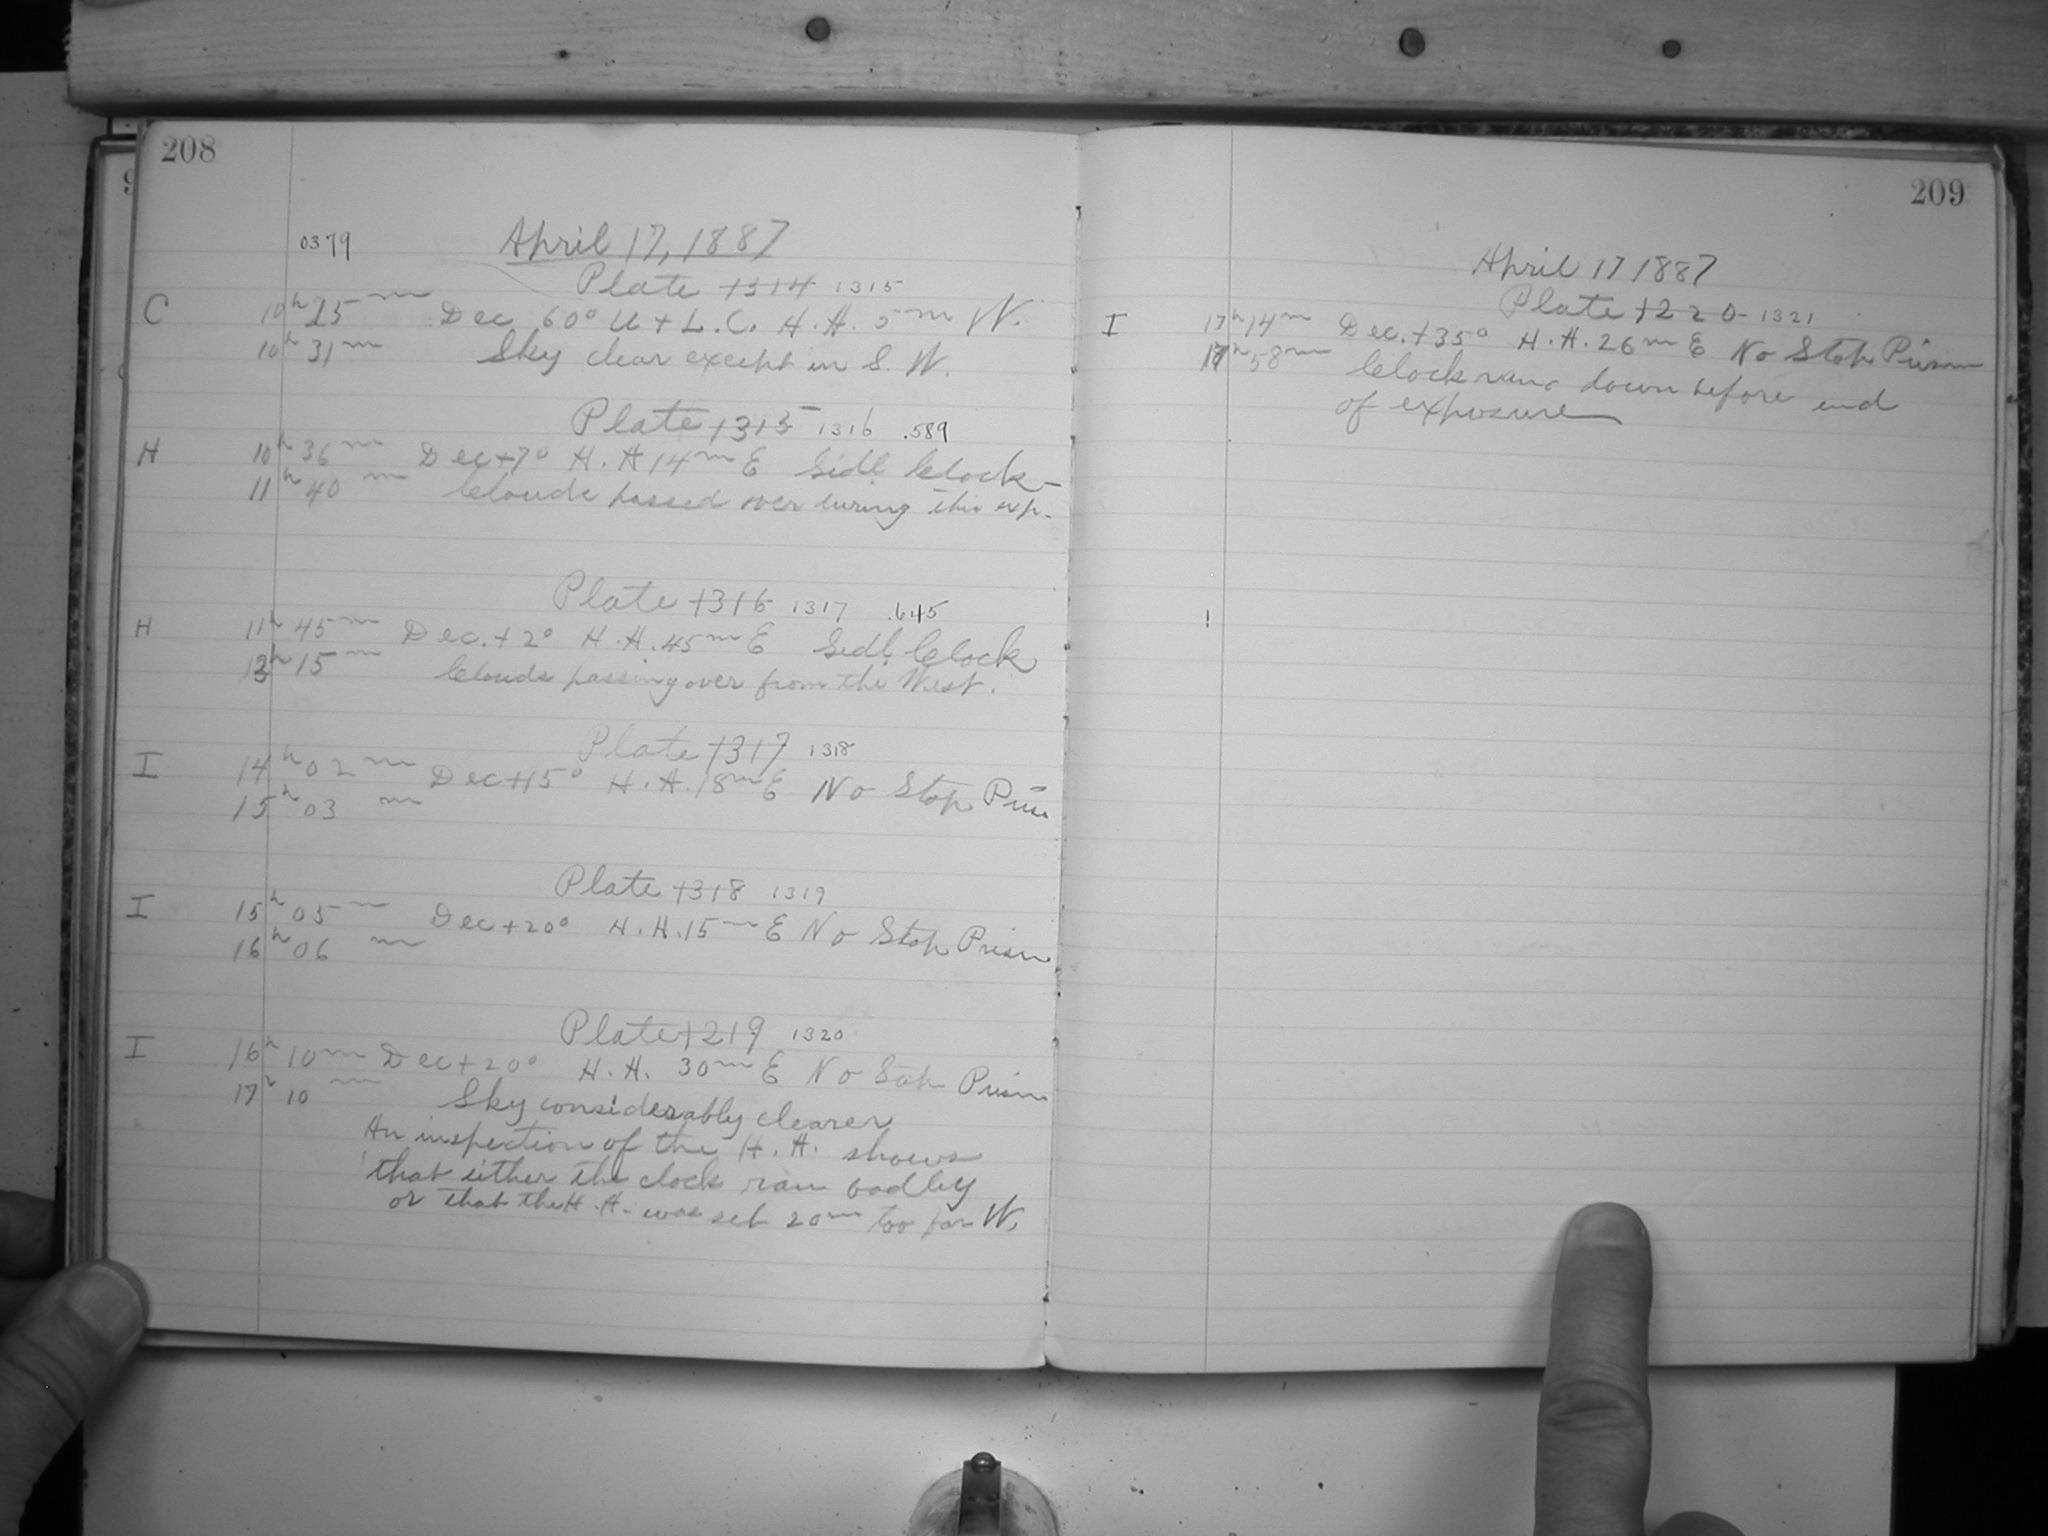 208
0379
April 17, 1887
Plate 1314 1315
C 10h 25m Dec 60° U + L.C. H.A. 5m W.
10h 31m Sky clear except in S.W.
Plate 1315 1316 .589
H 10h 36m Dec +7° H.A 14m E Sidl. Clock
11h 40m Clouds passed over during this exp.
Plate 1316 1317 .645
H 11h 45m Dec. +2° H.A. 45m E Sidl. Clock
13h 15m Clouds passing over from the West.
Plate 1317 1318
I 14h 02m Dec +15° H.A. 18m E No Stop Prism
15h 03m
Plate 1318 1319
I 15h 05m Dec +20° H.A. 15m E No Stop Prism
16h 06m
Plate 1219 1320
I 16h 10m Dec +20° H.A. 30m E No Stop Prism
17h 10m Sky considerably clearer
An inspection of the H.A. shows
that either the clock ran badly
or that the H.A. was set 20m too far W.
209
April 17 1887
Plate 1220 1321
I 17h 14m Dec. +35° H.A. 26m E No Stop Prism
58m Clock rang down before end
of exposure